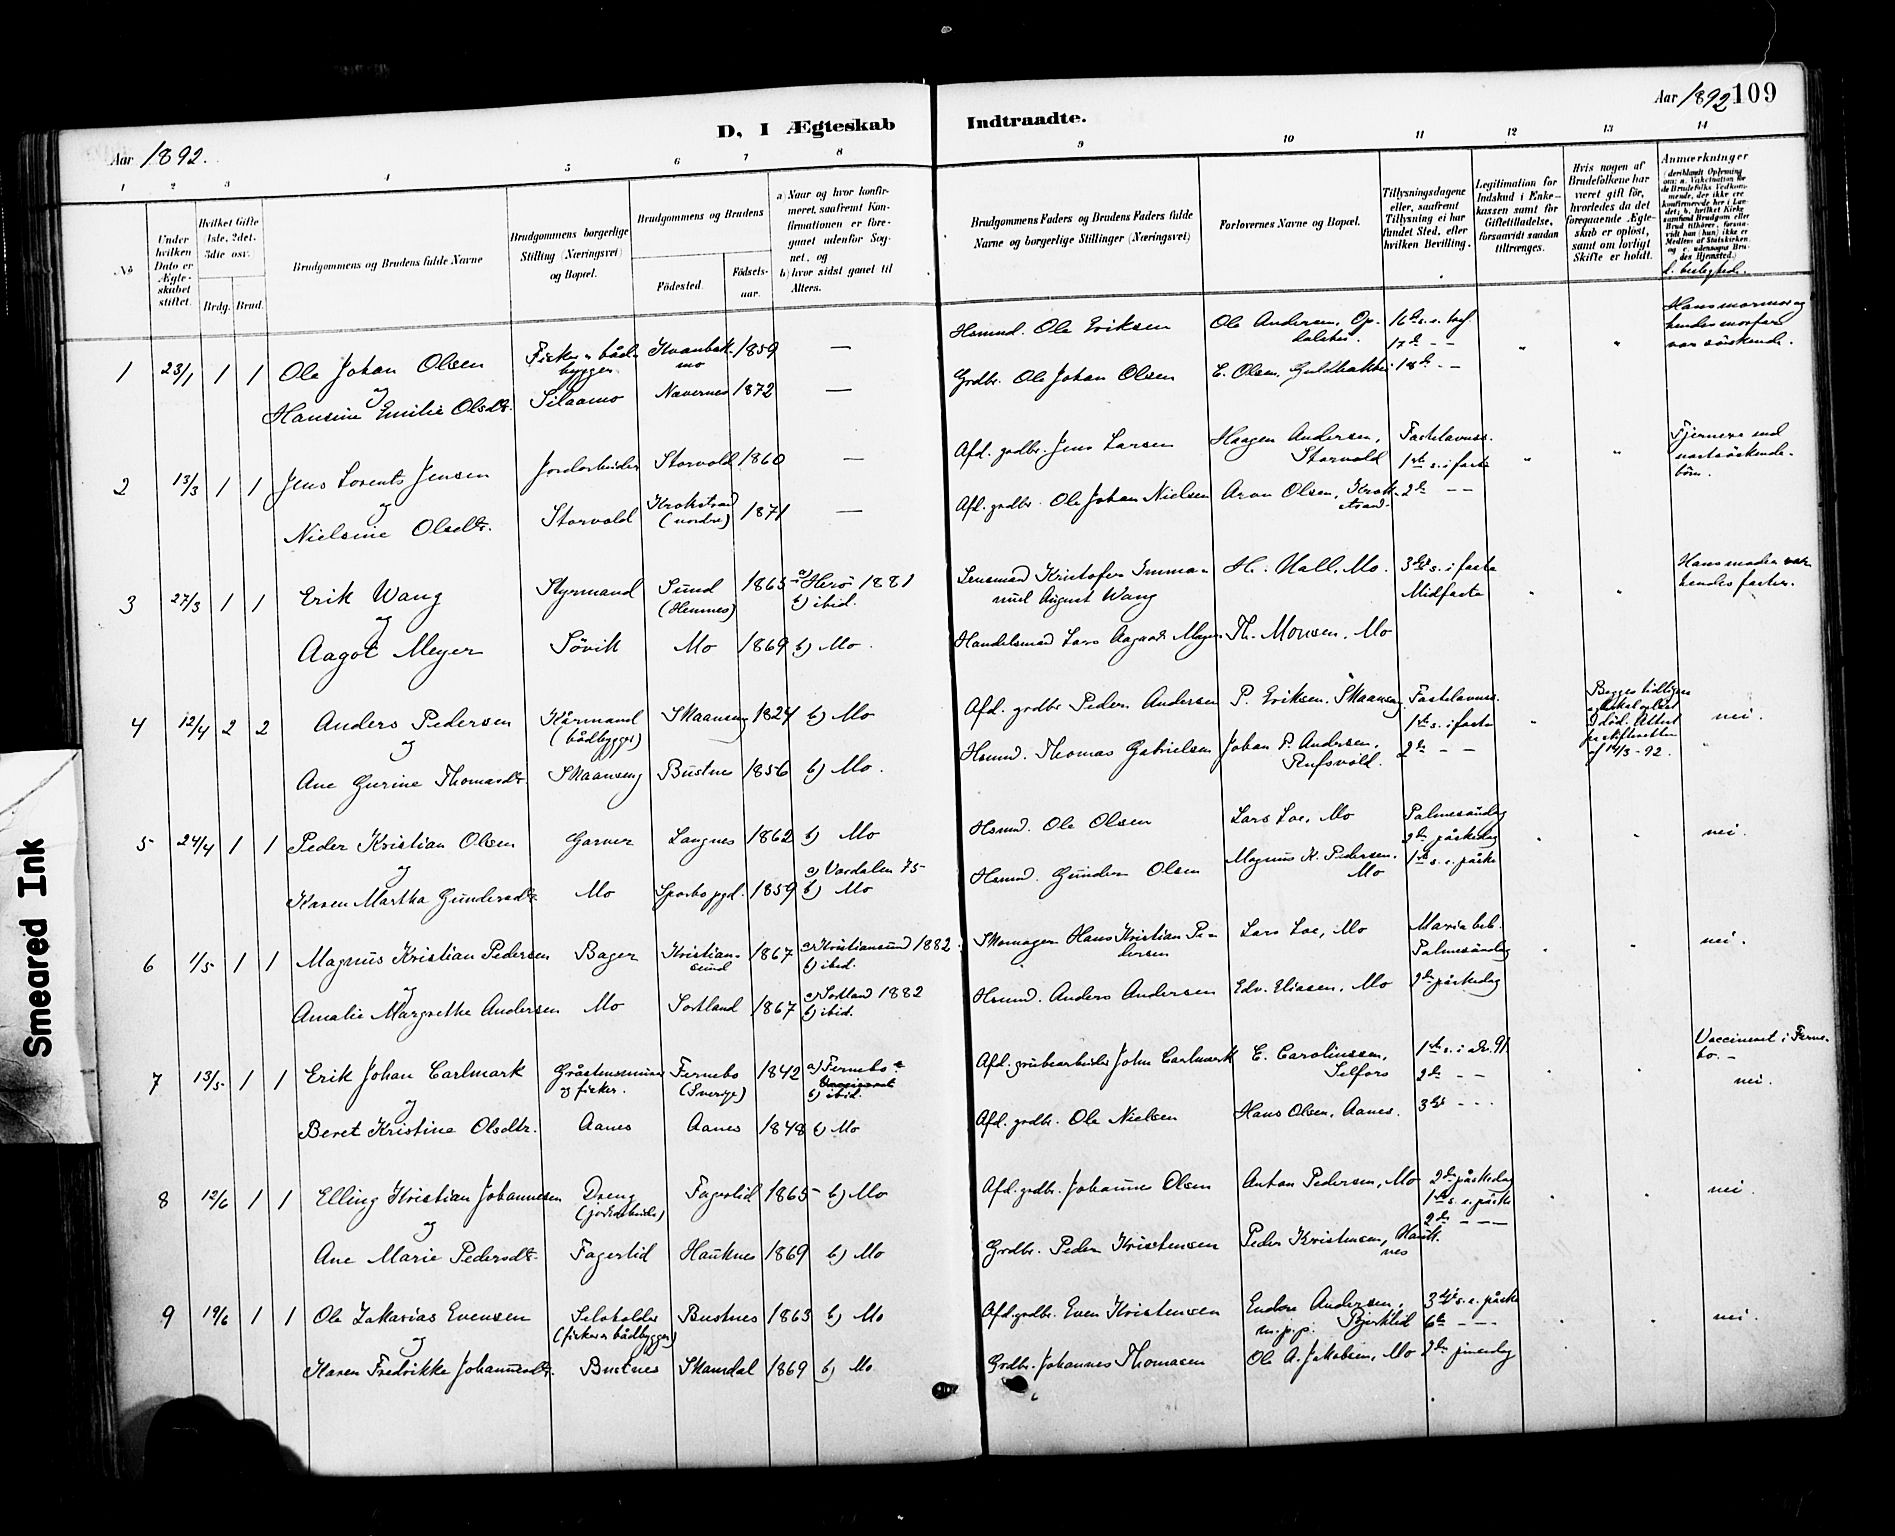 Aar 1892.
D, I Ægteskab Indtraadte.
Aar 1892 109
1 2 3 4 5 6 7 8 9 10 11 12 13 14
No
Under hvilken Dato er Ægteskabet stiftet.
Hvilket Gifte 1ste, 2det, 3die osv.
Brdg. Brud.
Brudgommens og Brudens fulde Navne
Brudgommens borgerlige Stilling (Næringsvei) og Bopæl.
Brudgommens og Brudens
Fødested. Fødselsaar.
a) Naar og hvor konfirmeret, saafremt Konfirmationen er foregaaet udenfor Sognet, og
b) hvor sidst gaaet til Alters.
Brudgommens Faders og Brudens Faders fulde Navne og borgerlige Stillinger (Næringsvei)
Forlovernes Navne og Bopæl.
Tillysningsdagene eller, saafremt Tillysning ei har fundet Sted, efter hvilken Bevilling.
Legitimation for Indskud i Enkekassen samt for Giftetilladelse, forsaavidt saadan tiltrænges.
Hvis nogen af Brudefolkene har været gift før, hvorledes da det foregaaende Ægteskab er opløst, samt om lovligt Skifte er holdt.
Anmærkninger
f. beslægtede.
1 23/1 1 1 Ole Johan Olsen Fisker & bådbygger Kvanbækmo 1859 — Husmd. Ole Eriksen Ole Andersen, Opdalslien. 16de s.e. tref. " " Hans mormor og
og 17de — — hendes morfar
Hansine Emilie Olsdtr. Silaamo Nævernes 1872 — Grdbr. Ole Johan Olsen E. Olsen, Guldhakken 18de — — var søskende.
2 13/3 1 1 Jens Lorents Jensen Jordarbeider Storvold 1860 — Afd. grdbr. Jens Larsen Haagen Andersen, Storvold Fastelavnss. " " Fjernere end
og 1ste s. i faste næstsøskende-
Nielsine Olsdtr. Storvold Krokstrand (nordre) 1871 — Afd. grdbr. Ole Johan Nielsen Aron Olsen, Krokstrand. 2de — — børn.
3 27/3 1 1 Erik Wang Styrmand Sund (Hemnes) 1865 a) Herø 1881 b) ibid. Lensmand Kristofer Immanuel August Wang H. Hall, Mo. 3die s. i faste " " Hans moder var
og Midfaste hendes faster.
Aagot Meyer Søvik Mo 1869 b) Mo. Handelsmand Lars Aagaard Meyer Th. Monsen, Mo
4 12/4 2 2 Anders Pedersen Kårmand (bådbygger) Skaanseng 1824 b) Mo Afd. grdbr. Peder Andersen P. Eriksen, Skaanseng Fastelavnss. " Begges tidligere nei.
og 1ste s. i faste
Ane Gurine Thomasdtr. Skaanseng Bustnes 1856 b) Mo. Husmd. Thomas Gabrielsen Johan P. Andersen, Rufsvold. 2de — — "
5 24/4 1 1 Peder Kristian Olsen Garver Langnes 1862 b) Mo Husmd. Ole Olsen Lars Loe, Mo Palmesøndag " " nei.
og 2den påskedag
Karen Martha Gundersdtr. Mo Sparbo pgd. 1859 a) Værdalen 75 b) Mo Husmd. Gunder Olsen Magnus K. Pedersen, Mo 1ste s. e. påske
6 1/5 1 1 Magnus Kristian Pedersen Bager Kristiansund 1867 a) Kristiansund 1882 b) ibid. Skomager Hans Kristian Pedersen Lars Loe, Mo Maria beb. " " nei.
og Palmesøndag
Amalie Margrethe Andersen Mo Sortland 1867 a) Sortland 1882 b) ibid. Husmd. Anders Andersen Edv. Eliasen, Mo 2den påskedag
7 13/5 1 1 Erik Johan Carlmark Gråstensmurer og fisker. Fernebo (Sverge) 1842 a) Fernebo b) ibid. Afd. grubearbeider John Carlmark E. Carolinssen, Selfors 1ste s. i adv. 91 " " Vaccineret i Fernebo. —
og 2den — — nei.
Beret Kristine Olsdtr. Aanes Aanes 1848 b) Mo Afd. grdbr. Ole Nielsen Hans Olsen, Aanes. 3die — — .
8 12/6 1 1 Elling Kristian Johannesen Dreng (jordarbeider) Fagerlid 1865 b) Mo Afd. grdbr. Johannes Olsen Anton Pedersen, Mo 2den påskedag " " nei.
og 1ste s. e. påske
Ane Marie Pedersdtr. Fagerlid Hauknes 1869 b) Mo Grdbr. Peder Kristensen Peder Kristensen, Hauknes 2den — — —
9 19/6 1 1 Ole Zakarias Evensen Selvholder (fisker & bådbygger) Bustnes 1863 b) Mo Afd. grdbr. Even Kristensen Endre Andersen, m.p.p. Bjerklid 3die s. e. påske " " nei.
og 6te — — —
Karen Fredrikke Johannesdtr. Bustnes Skamdal 1869 b) Mo Grdbr. Johannes Thomasen Ole A. Jakobsen, Mo 2den pinsedag
Smeared Ink